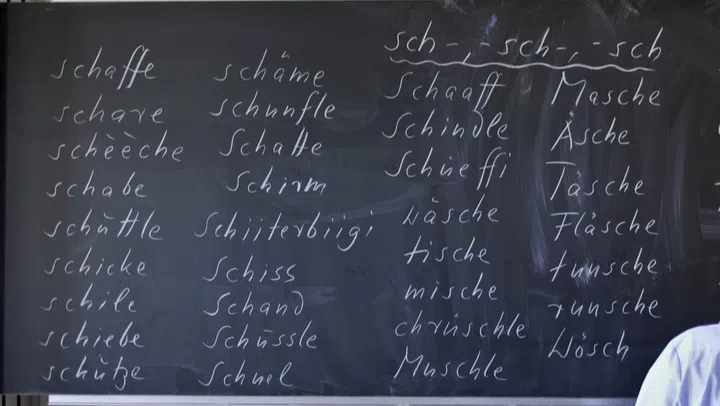 sch-, -sch-, -sch
schaffe
schare
schèèche
schabe
schùttle
schicke
schile
schiebe
schùtze
schäme
schunfle
Schatte
Schirm
Schiiterbiigi
Schiss
Schand
Schùssle
Schnel
Schaaff
Schindle
Schùeffi
wäsche
tische
mische
chrùschle
Muschle
Masche
Äsche
Täsche
Fläsche
tunsche
runsche
Wösch